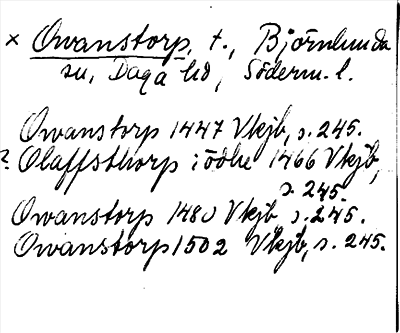 × Owanstorp, t., Björnlunda
sn, Daga hd, Söderm. l.
Owanstorp 1447 Vkjb, s. 245.
? Olaffsthorp i ödhe 1466 Vkjb,
s. 245.
Owanstorp 1480 Vkjb, s. 245.
Owanstorp 1502 Vkjb, s. 245.